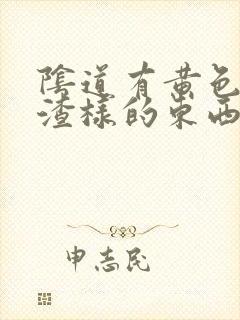 陰道有黄色
渣樣的東西
申志民